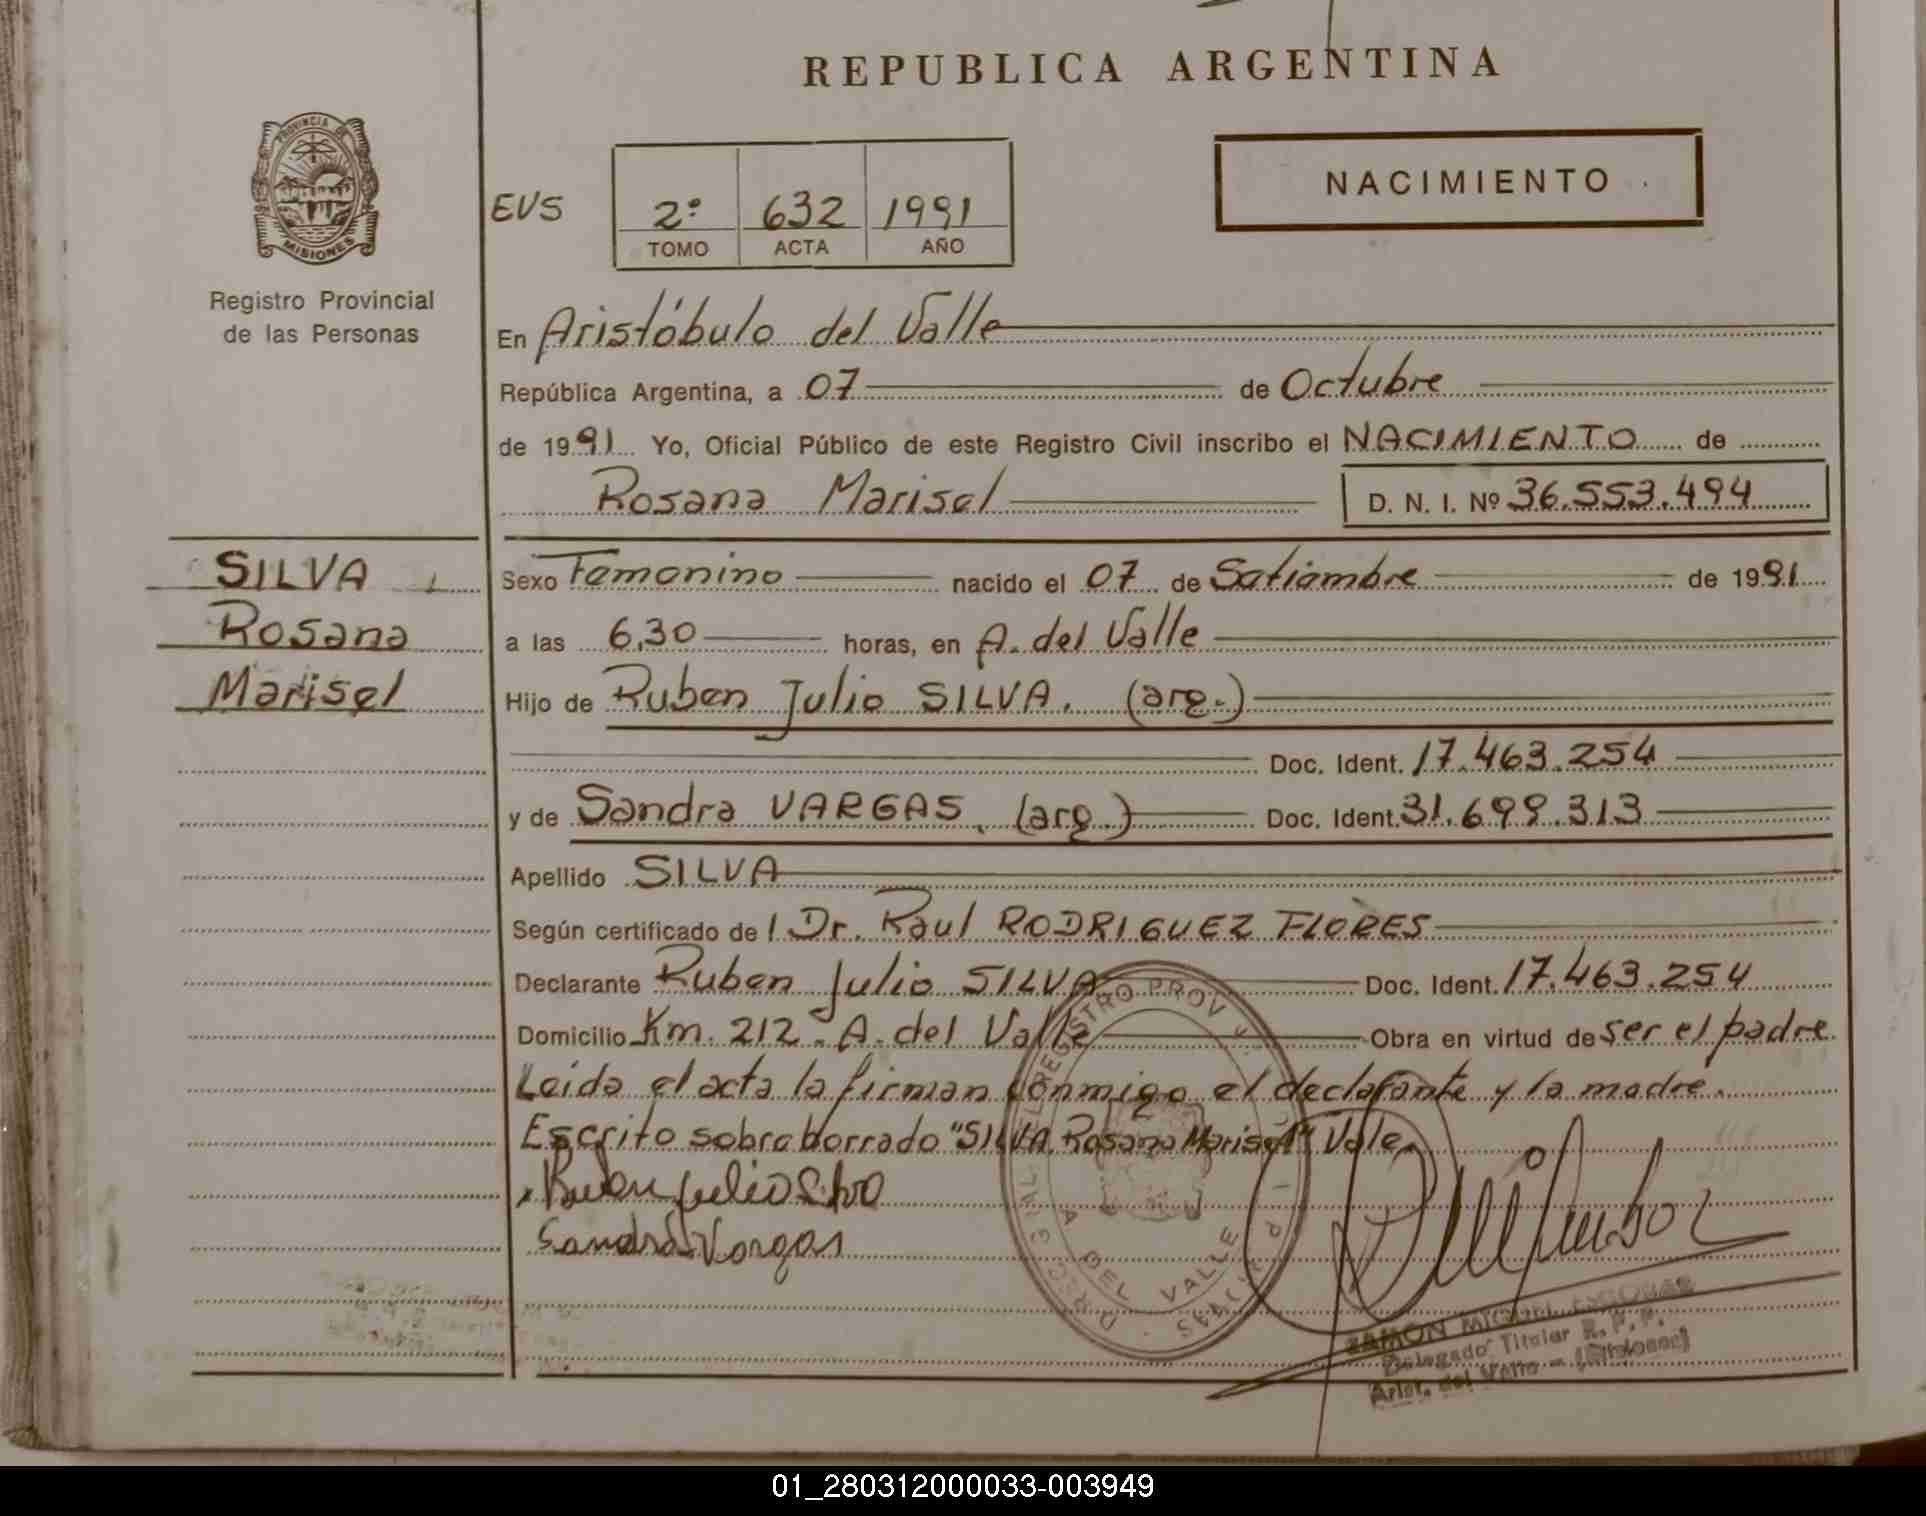 REPUBLICA ARGENTINA
PROVINCIA DE
MISIONES
Registro Provincial
de las Personas
EVS
2º 632 1991
TOMO ACTA AÑO
NACIMIENTO
En Aristóbulo del Valle
República Argentina, a 07 de Octubre
de 1991 Yo, Oficial Público de este Registro Civil inscribo el NACIMIENTO de
Rosana Marisel D. N. I. Nº 36.553.494
SILVA
Rosana
Marisel
Sexo Femenino nacido el 07 de Setiembre de 1991
a las 6,30 horas, en A. del Valle
Hijo de Ruben Julio SILVA. (arg.)
Doc. Ident. 17.463.254
y de Sandra VARGAS. (arg.) Doc. Ident. 31.699.313
Apellido SILVA
Según certificado de l Dr. Raul RODRIGUEZ FLORES
Declarante Ruben Julio SILVA Doc. Ident. 17.463.254
Domicilio Km. 212. A. del Valle Obra en virtud de ser el padre
Leida el acta la firman conmigo el declarante y la madre.
Escrito sobreborrado "SILVA Rosana Marisel" Vale.
Ruben Julio Silva
Sandra Vargas
REGISTRO PROV
DEL VALLE
RAMON MIGUEL ESCOBAR
Delegado Titular R. P. P.
Arist. del Valle - (Misiones)
01_280312000033-003949